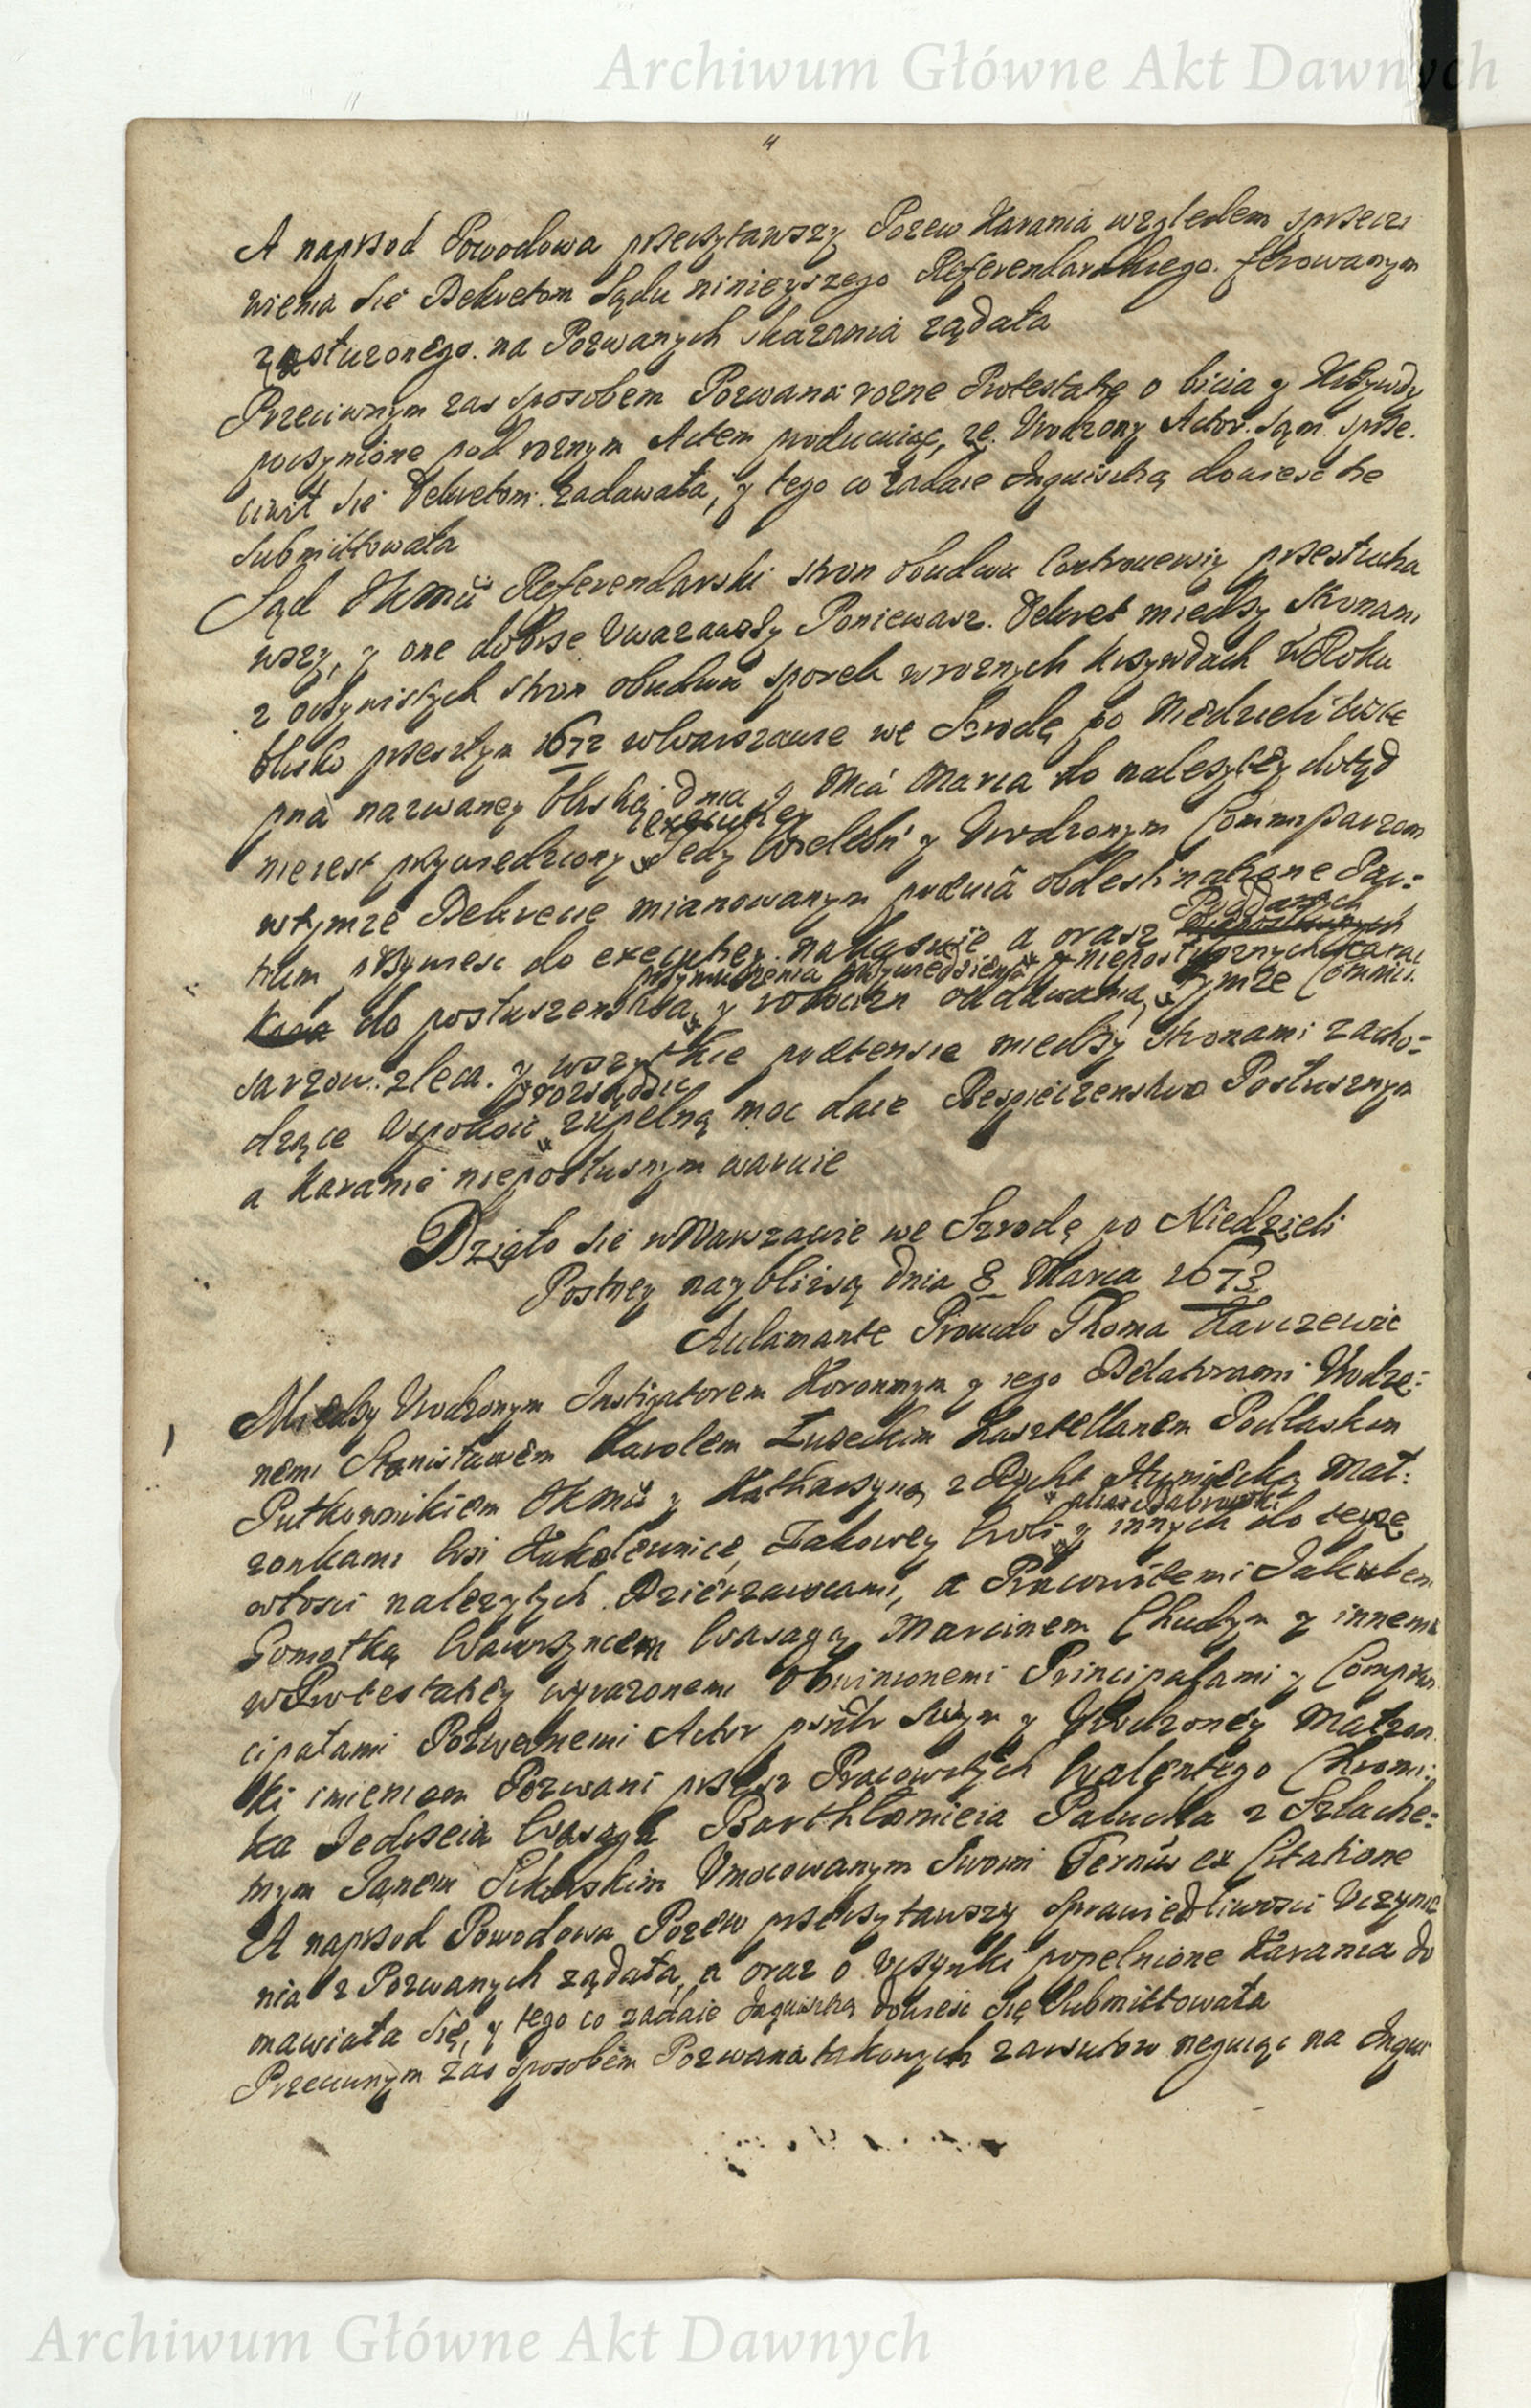 Archiwum Główne Akt Dawnych
4
A naprzod Powodowa przeczytawszy Pozew Karania względem sprzeci
wienia sie Dekretom Sądu ninieyszego Referendarskiego ferowanym
zasłużonego na Pozwanych skazania ządała
Przeciwnym zas sposobem Pozwana rozne Protestatie o bicia y Krzywdy
poczynione pod roznym Actem producuiąc, ze Urodzony Actor sąm sprze.
ciwił sie Dekretom zadawała, y tego co zadaie Inquisitią dowiesc sie
submittowała
Sąd JKMći Referendarski stron obudwu Controuersiy przesłucha
wszy, y one dobrze Uwazawszy Poniewasz Dekret miedzy Stronami
z oczywistych stron obudwu sporek w roznych krzywdach w Roku
blisko przeszłym 1672 w Warszawie we Szrodę po Niedzieli
pna nazwaney bliską dnia 9 Mca Marca do nalezytey dotąd
executiey
nie iest przywiedziony Tedy Wielebn y Urodzonym Commissarzom
w tymze Dekrecie mianowanym podług obdestinatione Par:
Poddanych
tium przywiesc do executiey nakazuie a oraz nieposłusznych karać
przymuszenia przywiedzienia
do posłuszenstwa y robocizn oddawania, tymze Commis.
sarzom zleca y wszytkie praetensie miedzy stronami zacho:
y rozsądzic
dzące Uspokoic zupełną moc daie Bespieczenstwo Posłusznym
a Karanie nieposłusznym waruie
Działo sie w Warszawie we Szrodę po Niedzieli
Postney nayblizszą dnia 8 Marca 1673
Aclamante Prouido Thoma Karczewic
Miedzy Urodzonym Instigatorem Koronnym y iego Delatorami Urodzo:
nemi Stanisławem Karolem Łuzeckim Kasztellanem Podlaskim
Pułkownikiem JKMći y Katharzyną z Rycht Humiecką Mał:
alias Dabrowski
zonkami wsi Kukolewnice, Jakowey Woli y innych do teyze
włosci nalezytych Dzierzawcami, a Pracowitemi Jakubem
Gomołką Wawrzyncem Wasagą Marcinem Chudym y innemi
w Protestatiey wyrazonemi Obwinionemi Principałami y Comprin
cipałami Pozwanemi Actor swym y Urodzoney Małzon
ki imieniem Pozwani przesz Pracowitych Walentego Chromi:
ka Jedrzeia Wasąga Barthłomieia Palucha z Szlache:
tnym Janem Sikorskim Umocowanym Swoim Ternus ex Citatione
A naprzod Powodowa Pozew przeczytawszy sprawiedliwosci Uczynie
nia z Pozwanych ządała, a oraz o Uczynki popełnione Karania do
mawiała sie, y tego co zadaie Inquisitią dowiesc się Submittowała
Przeciwnym zas sposobem Pozwana takowych zarzutow neguiąc na Inqui
Archiwum Główne Akt Dawnych